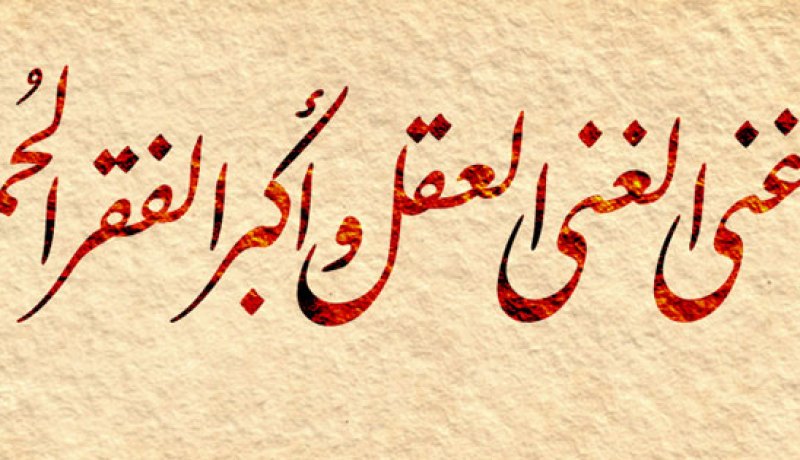 غنى الغنى العقل وأكبر الفقر الحُم